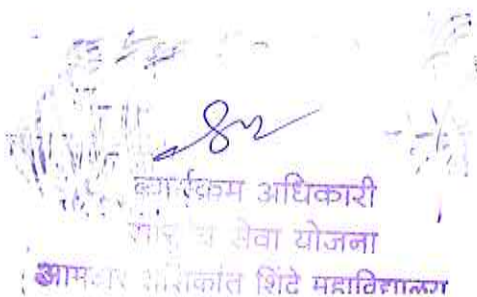 कार्यक्रम अधिकारी
सेवा योजना
आमदार शशिकांत शिंदे महाविद्यालय